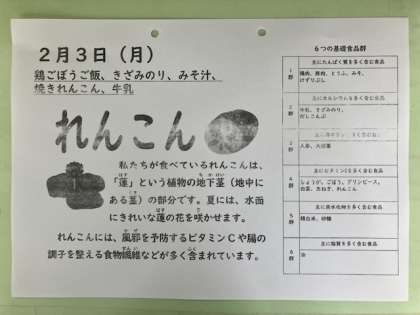 2月3日（月）
鶏ごぼうご飯、きざみのり、みそ汁、
焼きれんこん、牛乳
れんこん
私たちが食べているれんこんは、
「蓮」という植物の地下茎（地中に
ある茎）の部分です。夏には、水面
にきれいな蓮の花を咲かせます。
れんこんには、風邪を予防するビタミンCや腸の
調子を整える食物繊維などが多く含まれています。
6つの基礎食品群
1群
主にたんぱく質を多く含む食品
鶏肉、豚肉、とうふ、みそ、
けずりぶし
2群
主にカルシウムを多く含む食品
牛乳、きざみのり、
だしこんぶ
3群
人参、大根葉
4群
主にビタミンCを多く含む食品
しょうが、ごぼう、グリンピース、
白菜、玉ねぎ、れんこん
5群
主に炭水化物を多く含む食品
精白米、砂糖
6群
主に脂質を多く含む食品
油